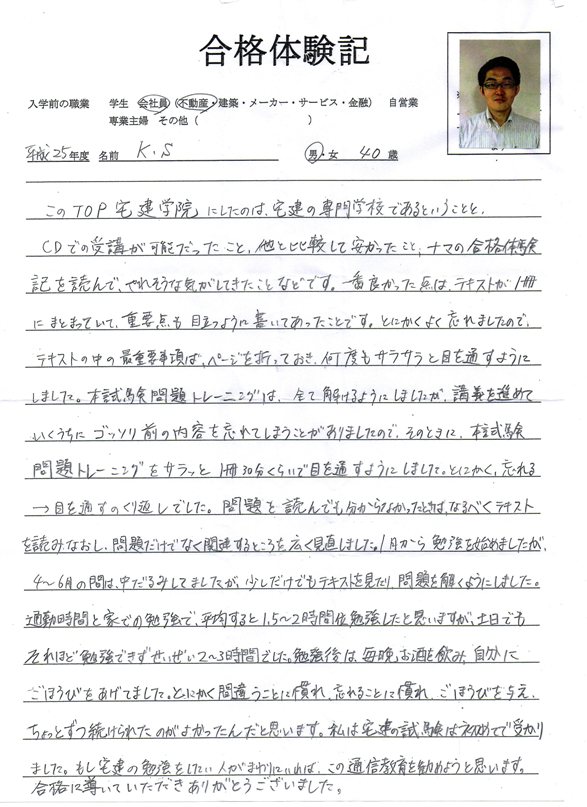 合格体験記
入学前の職業 学生 会社員 (不動産・建築・メーカー・サービス・金融) 自営業
専業主婦 その他 ( )
平成25年度 名前 K.S 男・女 40歳
このTOP宅建学院にしたのは、宅建の専門学校であるということと、
CDでの受講が可能だったこと、他と比較して安かったこと、ナマの合格体験
記を読んで、やれそうな気がしてきたことなどです。一番良かった点は、テキストが1冊
にまとまっていて、重要点も目立つように書いてあったことです。とにかくよく忘れましたので、
テキストの中の最重要事項は、ページを折っておき、何度もサラサラと目を通すように
しました。本試験問題トレーニングは、全て解けるようにしましたが、講義を進めて
いくうちにゴッソリ前の内容を忘れてしまうことがありましたので、そのときに、本試験
問題トレーニングをサラッと1冊30分くらいで目を通すようにしました。とにかく、忘れる
→目を通すのくり返しでした。問題を読んでも分からなかったときは、なるべくテキスト
を読みなおし、問題だけでなく関連するところを広く見直しました。1月から勉強を始めましたが、
4〜6月の間は、中だるみしてましたが、少しだけでもテキストを見たり、問題を解くようにしました。
通勤時間と家での勉強で、平均すると1.5〜2時間位勉強したと思いますが、土日でも
それほど勉強できずせいぜい2〜3時間でした。勉強後は、毎晩、お酒を飲み、自分に
ごほうびをあげてました。とにかく間違うことに慣れ、忘れることに慣れ、ごほうびを与え、
ちょっとずつ続けられたのがよかったんだと思います。私は宅建の試験は初めてで受かり
ました。もし宅建の勉強をしたい人がまわりにいれば、この通信教育を勧めようと思います。
合格に導いていただきありがとうございました。